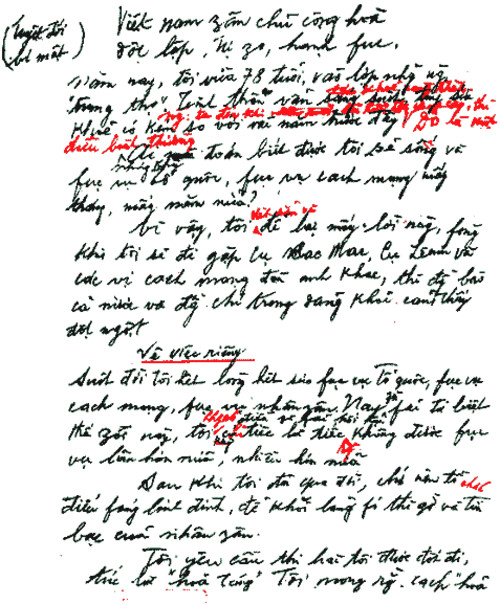 (tuyệt đối
bí mật)
Việt nam zân chủ cộng hoà
độc lập, tự zo, hạnh fúc.
Năm nay, tôi vừa 78 tuổi, vào lớp những
"trung thọ". Tinh thần vẫn
khoẻ có kém so với vài năm trước đây Đó là một
điều bình thường
đoán biết được tôi sẽ sống và
fục vụ tổ quốc, fục vụ cách mạng mấy
tháng, mấy năm nữa?
Vì vậy, tôi để lại mấy lời này, fòng
khi tôi sẽ đi gặp cụ Các Mác, cụ Lênin và
các vị cách mạng đàn anh khác, thì đồng bào
cả nước và đồng chí trong đảng khỏi cảm thấy
đột ngột
Về việc riêng
Suốt đời tôi hết lòng hết sức fục vụ Tổ quốc, fục vụ
cách mạng, fục vụ nhân zân. Nay zù fải từ biệt
thế zới này, tôi chỉ tiếc là tiếc không được fục
vụ lâu hơn nữa, nhiều hơn nữa
Sau khi tôi đã qua đời, chớ nên tổ chức
điếu fúng linh đình, để khỏi lãng fí thì zờ và tiền
bạc của nhân zân.
Tôi yêu cầu thi hài tôi được đốt đi,
tức là "hoả táng" Tôi mong rằng cách "hoả